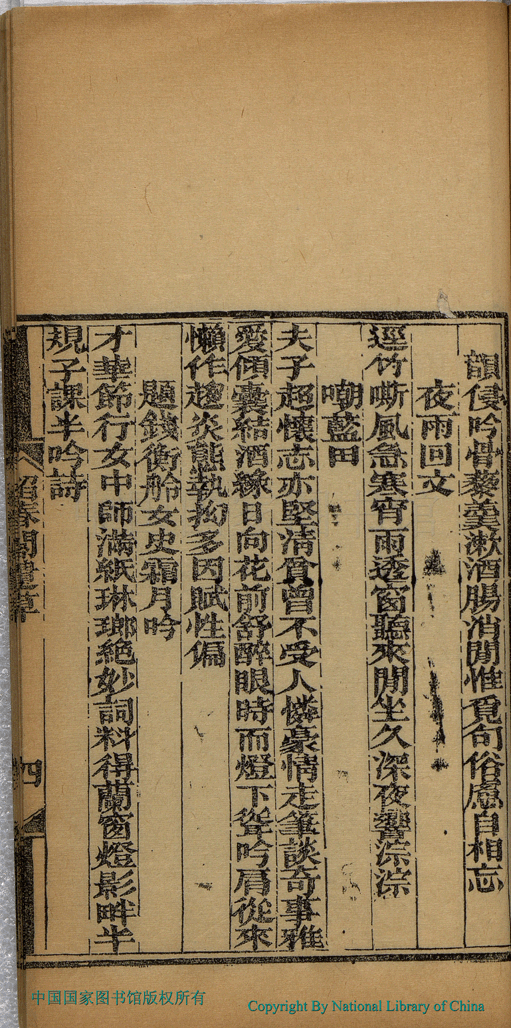 韻侵吟骨藜羹潄酒腸消閒惟覓句俗慮自相忘
夜雨回文
逕竹嘶風急寒宵雨透窗聽來閒坐久深夜響淙淙
嘲藍田
夫子超懷志亦堅清貧曾不受人憐豪情走筆談奇事雅
愛傾囊結酒緣日向花前舒醉眼時而燈下聳吟肩從來
懶作趨炎態執拗多因賦性偏
題錢衡舲女史霜月吟
才華節行女中師滿紙琳瑯絶妙詞料得蘭窗燈影畔半
規子課半吟詩
四
中国国家图书馆版权所有
Copyright By National Library of China